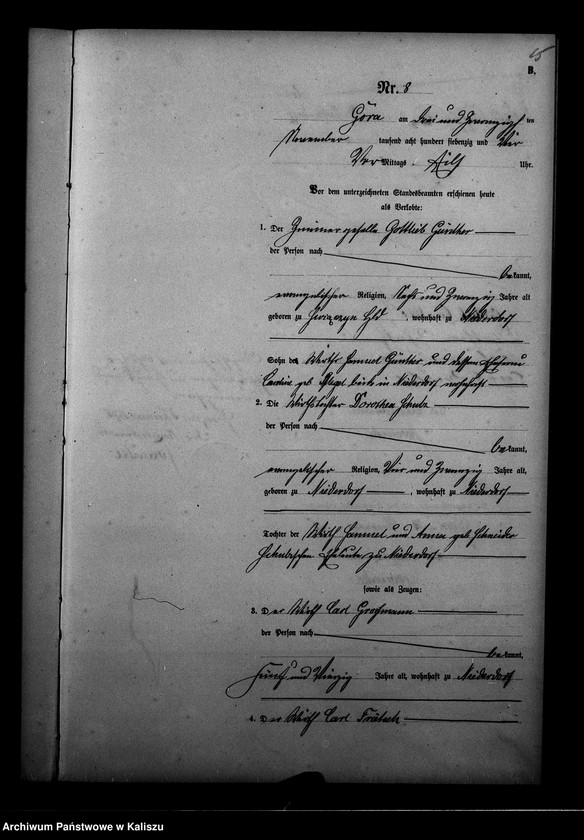 15
B.
Nr. 8
Góra am drei und zwanzigsten
November tausend acht hundert siebenzig und vier
Vor Mittags Uhr.
Vor dem unterzeichneten Standesbeamten erschienen heute
als Verlobte:
1. Der Zimmergeselle Gottlieb Günther
der Person nach
bekannt,
evangelischer Religion, und zwanzig Jahre alt
geboren zu Hld, wohnhaft zu Niederdorf
Sohn des Wirths Samuel Günther und dessen Ehefrau
geb beide in Niederdorf wohnhaft
2. Die Wirthstochter Dorothea Schulz
der Person nach
bekannt,
evangelischer Religion, vier und zwanzig Jahre alt,
geboren zu Niederdorf, wohnhaft zu Niederdorf
Tochter der Wirth Samuel und Anna geb Schneider
Schulzschen Eheleute zu Niederdorf
sowie als Zeugen:
3. Der Wirth Carl Grossmann
der Person nach
bekannt,
fünf und vierzig Jahre alt, wohnhaft zu Niederdorf
4. Der Wirth Carl
Archiwum Państwowe w Kaliszu